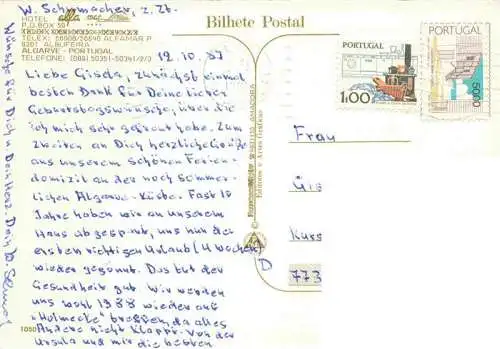 W. Schumacher, z. Zt.
HOTEL alfa mar
P.O. BOX 50
TELEX: 56909/26846 ALFAMAR P
8201 ALBUFEIRA
ALGARVE - PORTUGAL
TELEFONE: (089) 50351-50341/2/3
Bilhete Postal
12.10.87
Liebe Gisela, zunächst einmal
besten Dank für Deine lieben
Geburtstagswünsche, über die
ich mich sehr gefreut habe. Zum
zweiten an Dich herzliche Grüße
aus unserem schönen Ferien-
domizil an der noch sommer-
lichen Algarve-Küste. Fast 10
Jahre haben wir an unserem
Haus abgespart, uns nun den
ersten richtigen Urlaub (4 Wochen)
wieder gegönnt. Das tut der
Gesundheit gut. Wir werden
uns wohl 1988 wieder aus
"Holmecke" treffen, da alles
Andere nicht klappt. Von der
Ursula und mir die besten
Wünsche für Dich u. Dein Herz. Dein W.
1050
PORTUGAL
1$00
PORTUGAL
50$00
Edições e Artes Gráficas
Frau
Gis
Kurs
D
773